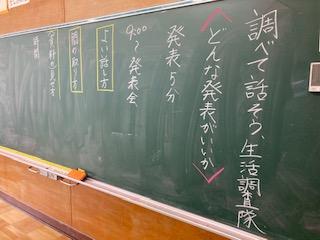 調べて話そう生活調査隊
どんな発表がいいか
発表5分
9:00〜発表会
よい話し方
間の取り方
資料の見せ方
時間